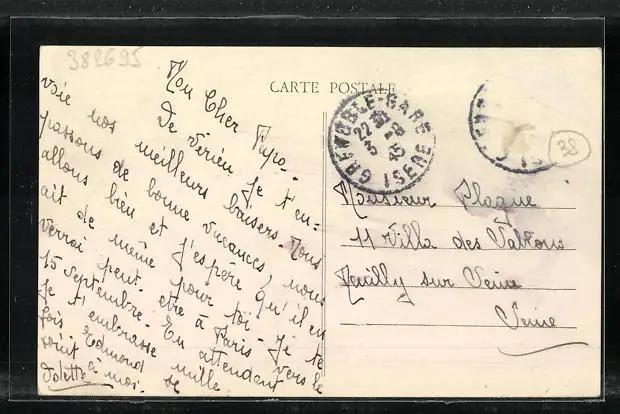 382695
CARTE POSTALE
Mon Cher Papo-
De Vérieu je t'en=
voie nos meilleurs baisers. Nous
passons de bonne vacances, nous
allons bien et j'espère qu'il en
ait de même pour toi - Je te
verrai peut-etre à Paris vers le
15 septembre - En attendant
je t'embrasse mille
fois Edmond se
joint à moi.
GRENOBLE-GARE
22 30
3 -8
45
ISERE
38
Monsieur Plaque
11 Villa des Vallons
Neuilly sur Seine
Seine